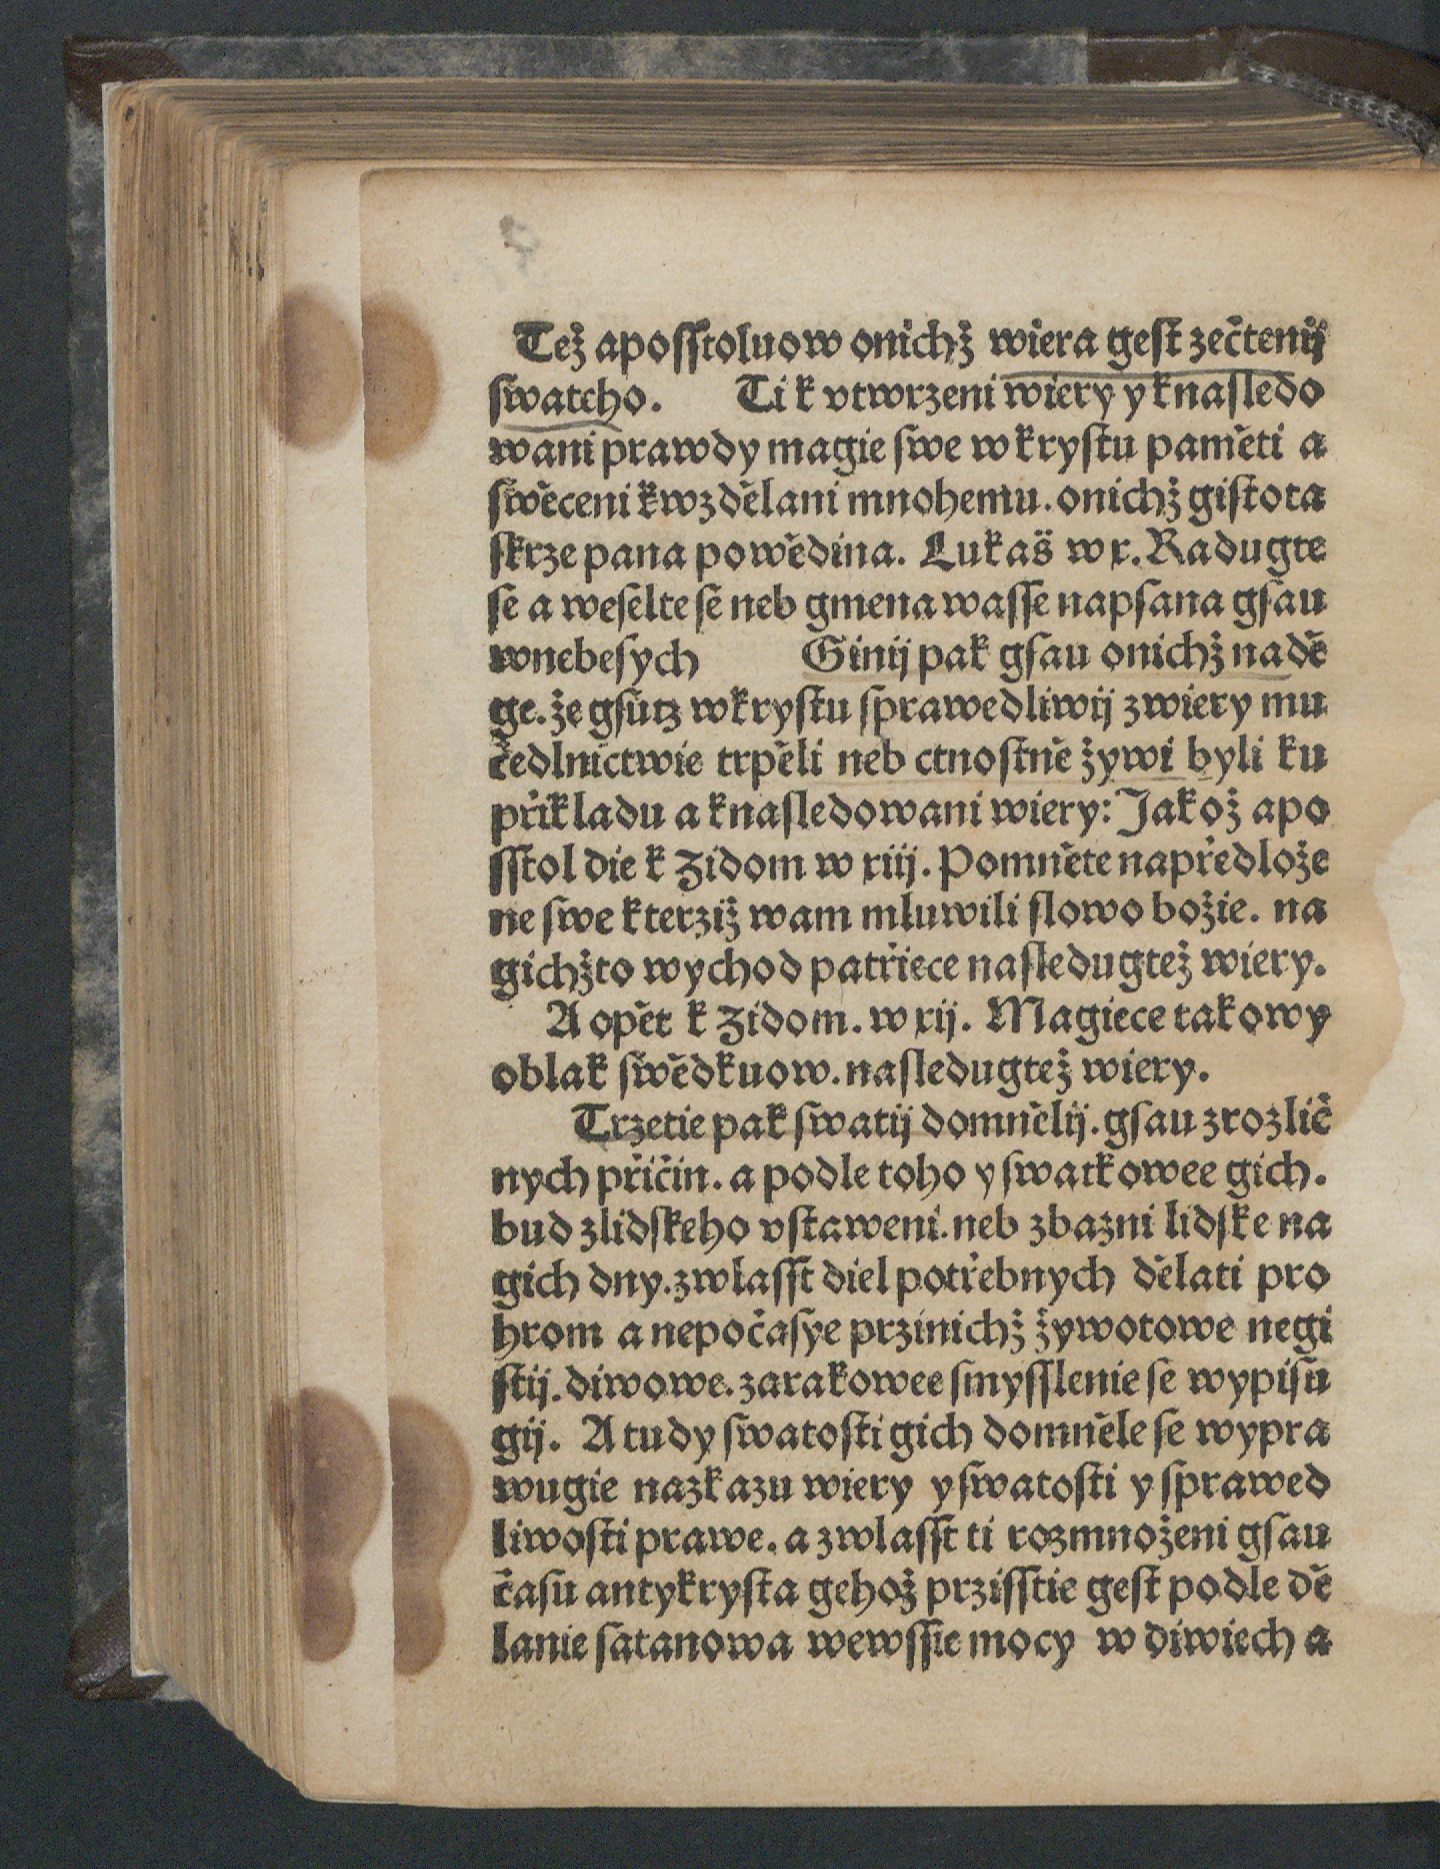 Też aposſtoluow onichż wiera geſt zečtenij
ſwateho. Ti k vtwrzeni wiery y knaſledo
wani prawdy magie ſwe w kryſtu paměti a
ſwěceni kwzdělani mnohemu. onichż giſtota
ſkrze pana powědina. Lukaš w x. Radugte
ſe a weſelte ſe neb gmena waſſe napſana gſau
wnebeſych Ginij pak gſau onichż naďě
ge. że gſutz wkryſtu ſprawedliwij zwiery mu
čedlnictwie trpěli neb ctnoſtně żywi byli ku
přikladu a knaſledowani wiery: Jakoż apo
ſſtol die k Zidom w xiij. Pomněte napředloże
ne ſwe kterziż wam mluwili ſlowo bożie. na
gichżto wychod patřiece naſledugteż wiery.
A opět k Zidom. w xij. Magiece takowy
oblak ſwědkuow. naſledugteż wiery.
Trzetie pak ſwatij domnělij. gſau zrozlič
nych přičin. a podle toho y ſwatkowee gich.
bud zlidſkeho vſtaweni. neb zbazni lidſke na
gich dny. zwlaſſt diel potřebnych dělati pro
hrom a nepočaſye przinichż żywotowe negi
ſtij. diwowe. zarakowee ſmyſſlenie ſe wypiſu
gij. A tudy ſwatoſti gich domněle ſe wypra
wugie nazkazu wiery y ſwatoſti y ſprawed
liwoſti prawe. a zwlaſſt ti rozmnożeni gſau
čaſu antykryſta gehoż przisſtie geſt podle dě
lanie ſatanowa wewſſie mocy w diwiech a